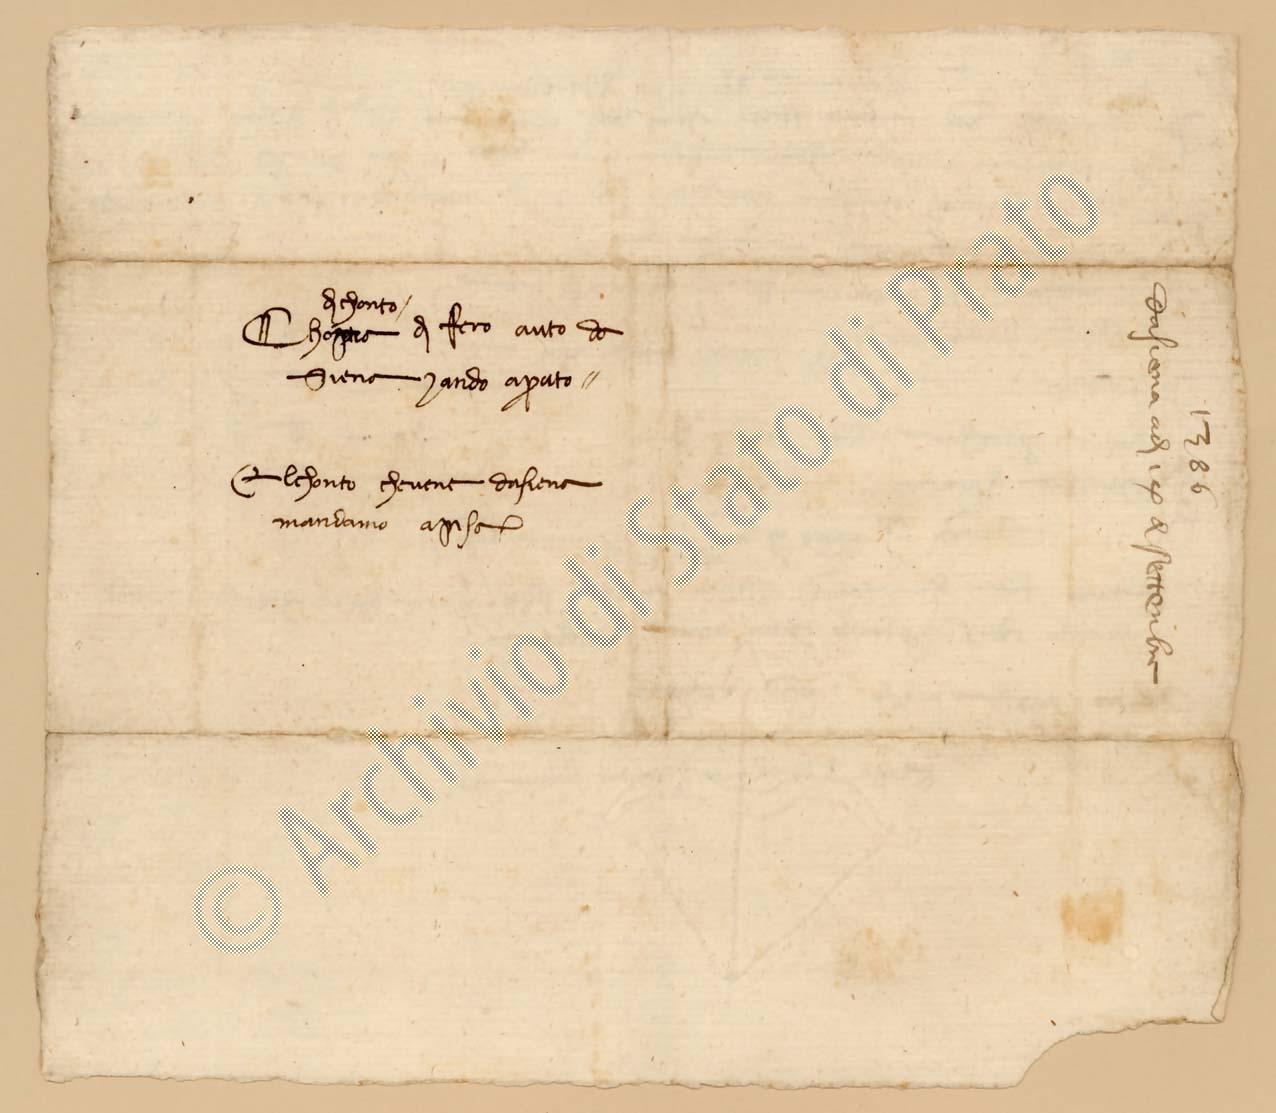 di chonto
Chopia di fero auto da
Siena Nando a Prato
El chonto che vene da Siena
mandamo a Pisa
1386
da Siena a dì ix di settenbre
© Archivio di Stato di Prato